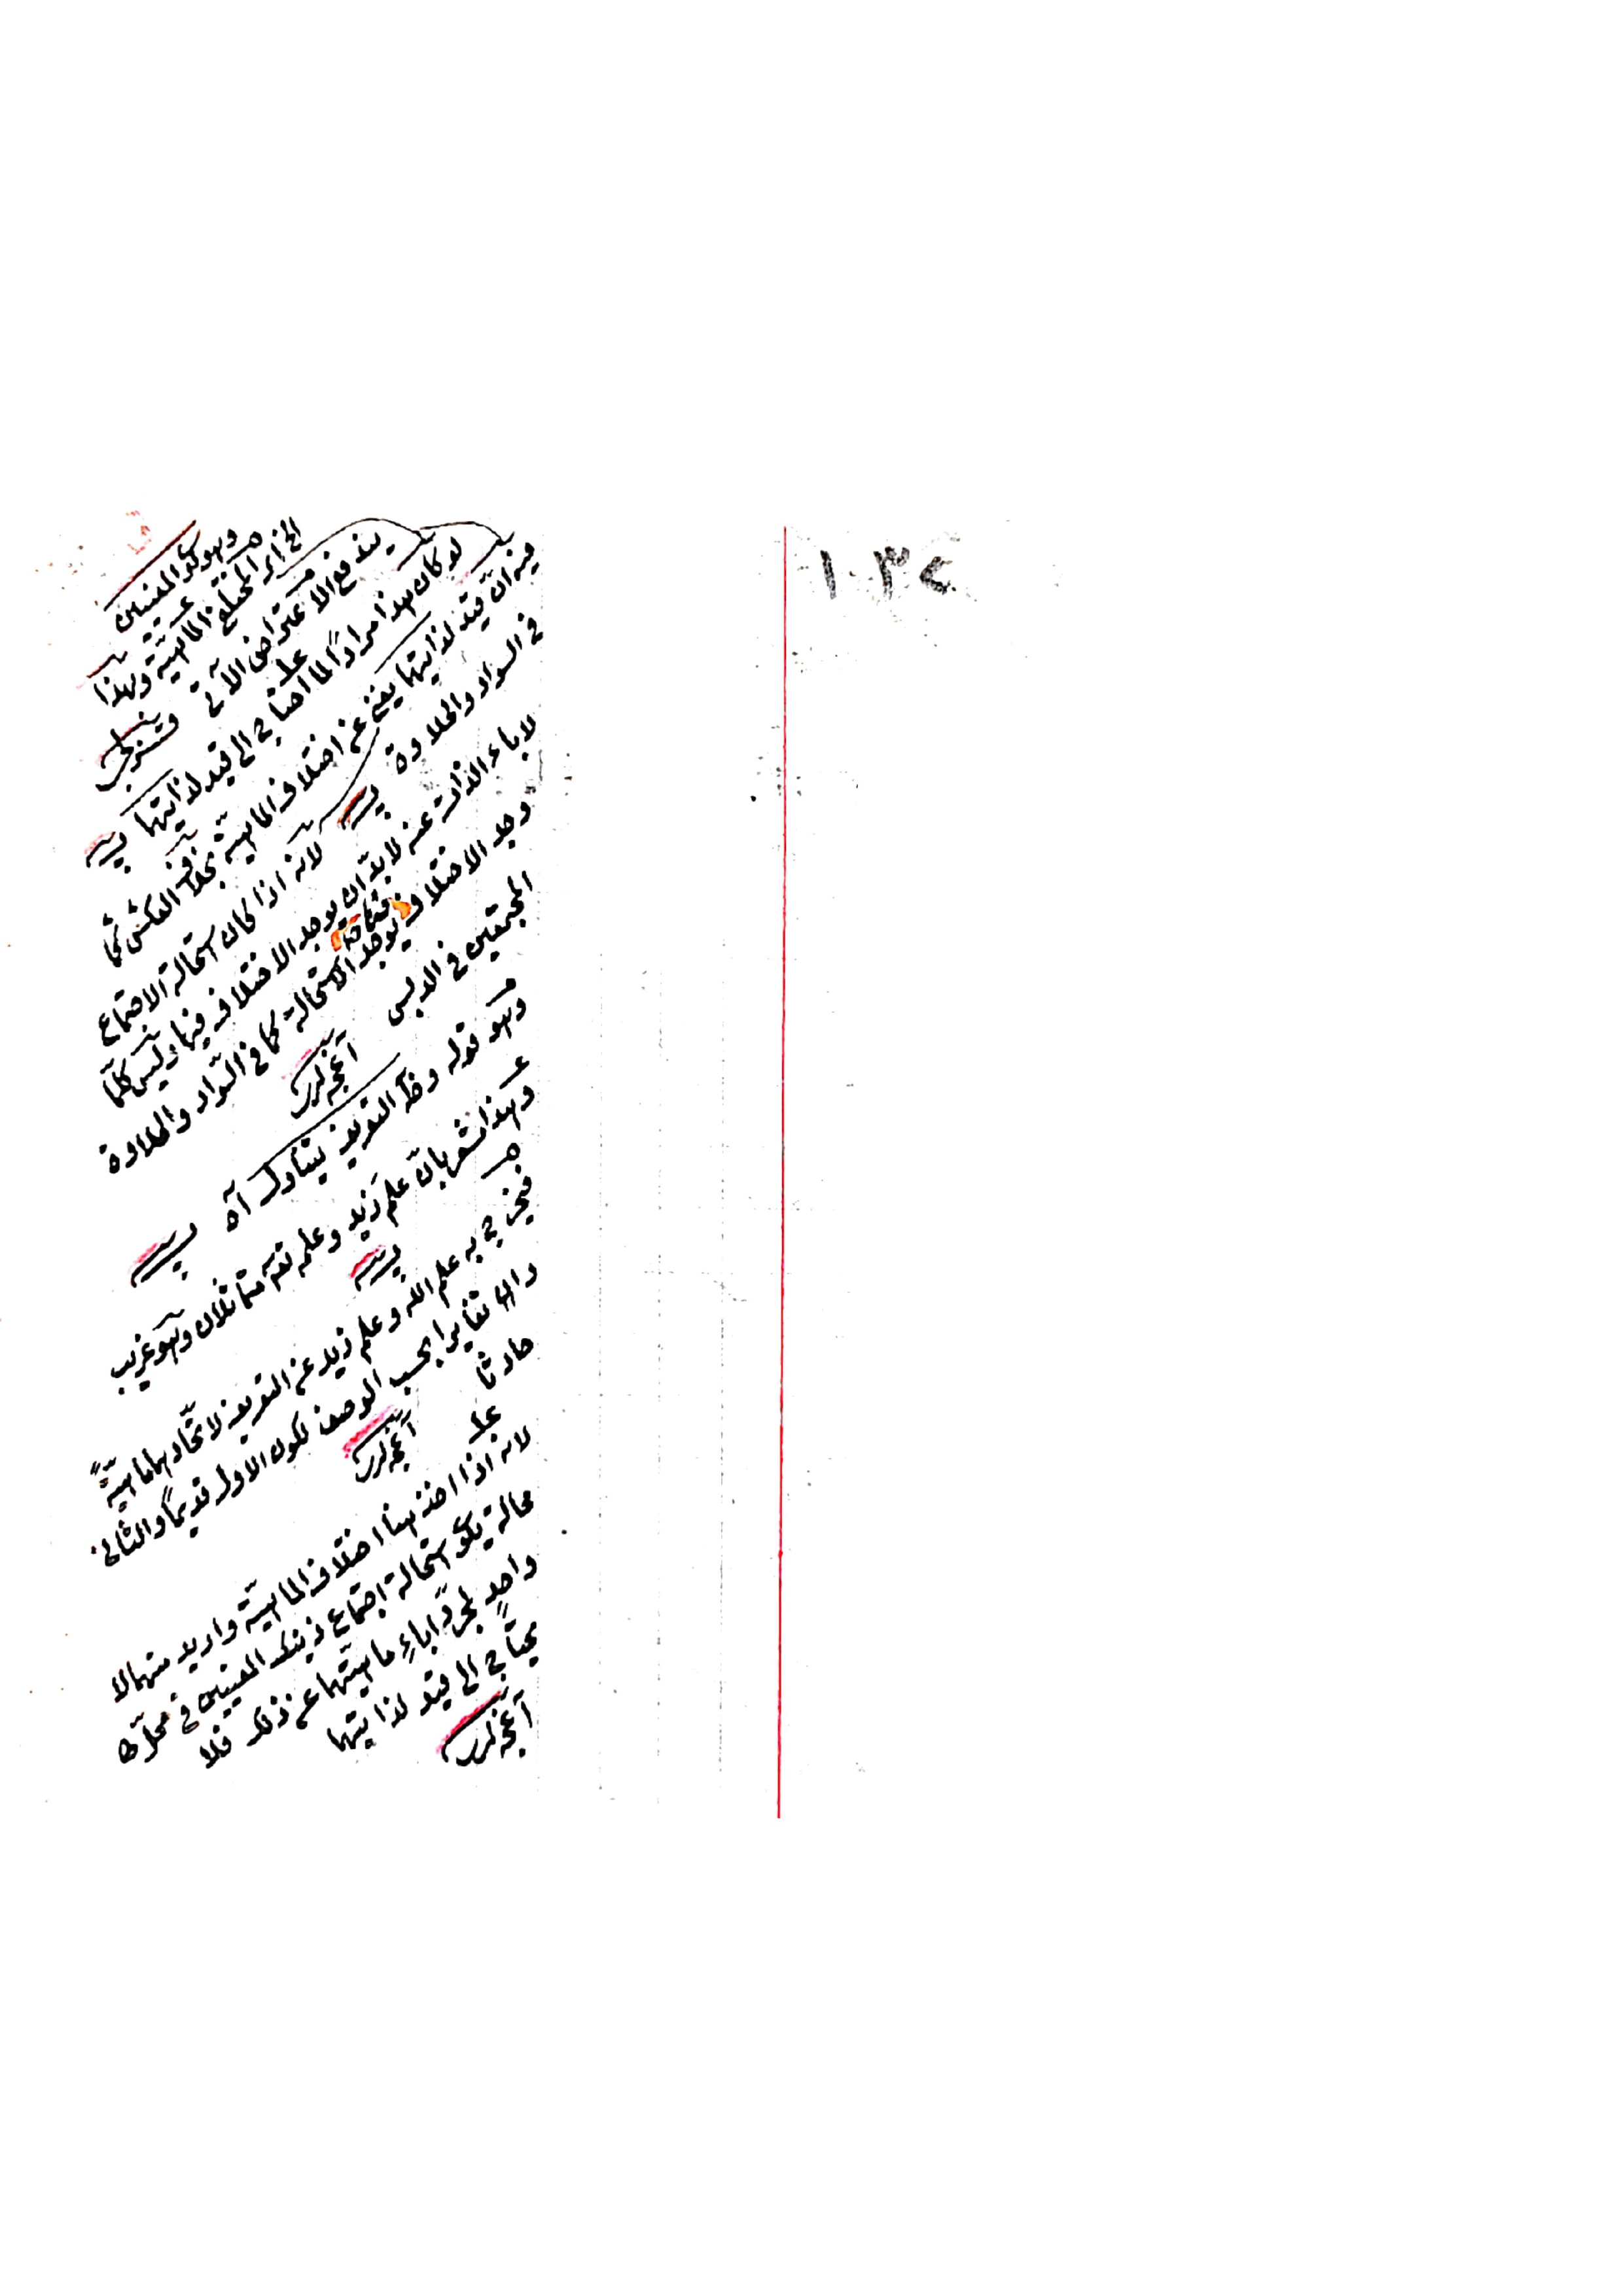 ١٠٣٤
وهو كون المعنيين
الخ أى المختلفى الماهية وبهذا
يندفع الاعتراض الآتى
لو كان هذا مرادًا لما احتاج الى قيد لذاتيهما
من ان قيد لذاتيهما يغنى عن اختلاف الماهية بخلاف العكس كما
فى السواد والحلاوة
لانه اذا كان استحالة الاجتماع
لاباء الذات عنه لابد ان يوجد الاختلاف فيها وليس كلما
وجد الاختلاف يوجد الاستحالة كما فى السواد والحلاوة
المجتمعين فى الدبس
وهو قوله وظ التعريف يتناول آه
وهذا يشعر بان علم زيد وعلم نفسه متماثلان وهو غريب
فيخرج به علم الله وعلم زيد عن التعريف لاتحادهما ماهيةً
وان تغايرا بحسب الوصف لكون الاول قديمًا والثانى
حادثا
علة
لانه اذا اخذ هنا اختلاف الماهية واريد منهما لا
محالة يكون استحالة اجتماع ذينك المعنيين فى محل
واحد لمجرد اباء ماهيتهما عن ذلك فلا
يحتاج الى قيد لذاتيهما